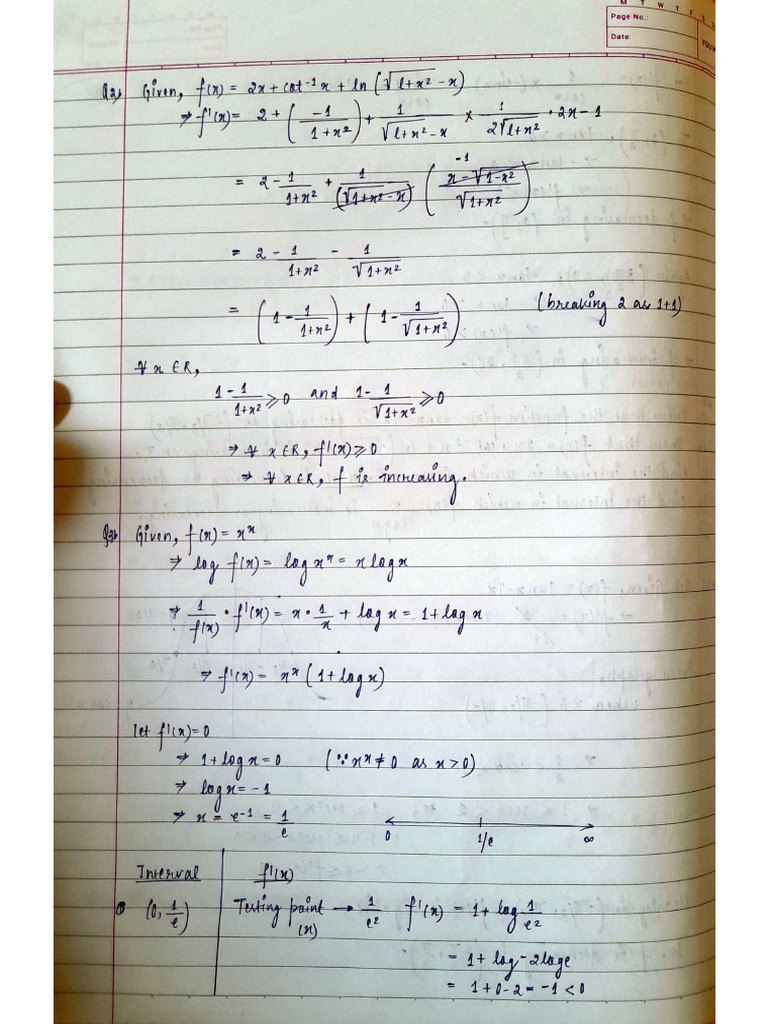 M T W T F S S
Page No.:
Date:
YOUV
Q2) Given, f(x) = 2x + cot⁻¹x + ln (√(1+x²) - x)
⇒ f'(x) = 2 + (-1/(1+x²)) + 1/(√(1+x²) - x) × 1/(2√(1+x²)) · 2x - 1
= 2 - 1/(1+x²) + 1/(√(1+x²) - x) ((x - √(1-x²))/√(1+x²)) -1
= 2 - 1/(1+x²) - 1/√(1+x²)
= (1 - 1/(1+x²)) + (1 - 1/√(1+x²)) (breaking 2 as 1+1)
∀ x ∈ R,
1 - 1/(1+x²) ≥ 0 and 1 - 1/√(1+x²) ≥ 0
⇒ ∀ x ∈ R, f'(x) ≥ 0
⇒ ∀ x ∈ R, f is increasing.
Q3) Given, f(x) = xˣ
⇒ log f(x) = log xˣ = x log x
⇒ 1/f(x) · f'(x) = x · 1/x + log x = 1 + log x
⇒ f'(x) = xˣ (1 + log x)
let f'(x) = 0
⇒ 1 + log x = 0 (∵ xˣ ≠ 0 as x > 0)
⇒ log x = -1
⇒ x = e⁻¹ = 1/e
0 1/e ∞
Interval f'(x)
(0, 1/e) Testing point (x) → 1/e² f'(x) = 1 + log 1/e²
= 1 + log - 2 log e
= 1 + 0 - 2 = -1 < 0